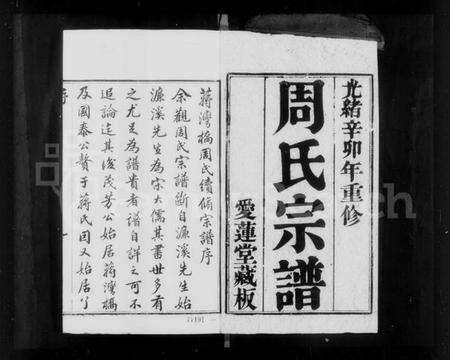 光緒辛卯年重修
周氏宗譜
愛蓮堂藏板
蔣灣橋周氏續修宗譜序
余觀周氏宗譜斷自濂溪先生始
濂溪先生為宋大儒其書世多有
之尤足為譜貴者譜自詳之可不
追論迨其後茂芳公始居蔣灣橋
及國泰公贅于蔣氏因又始居